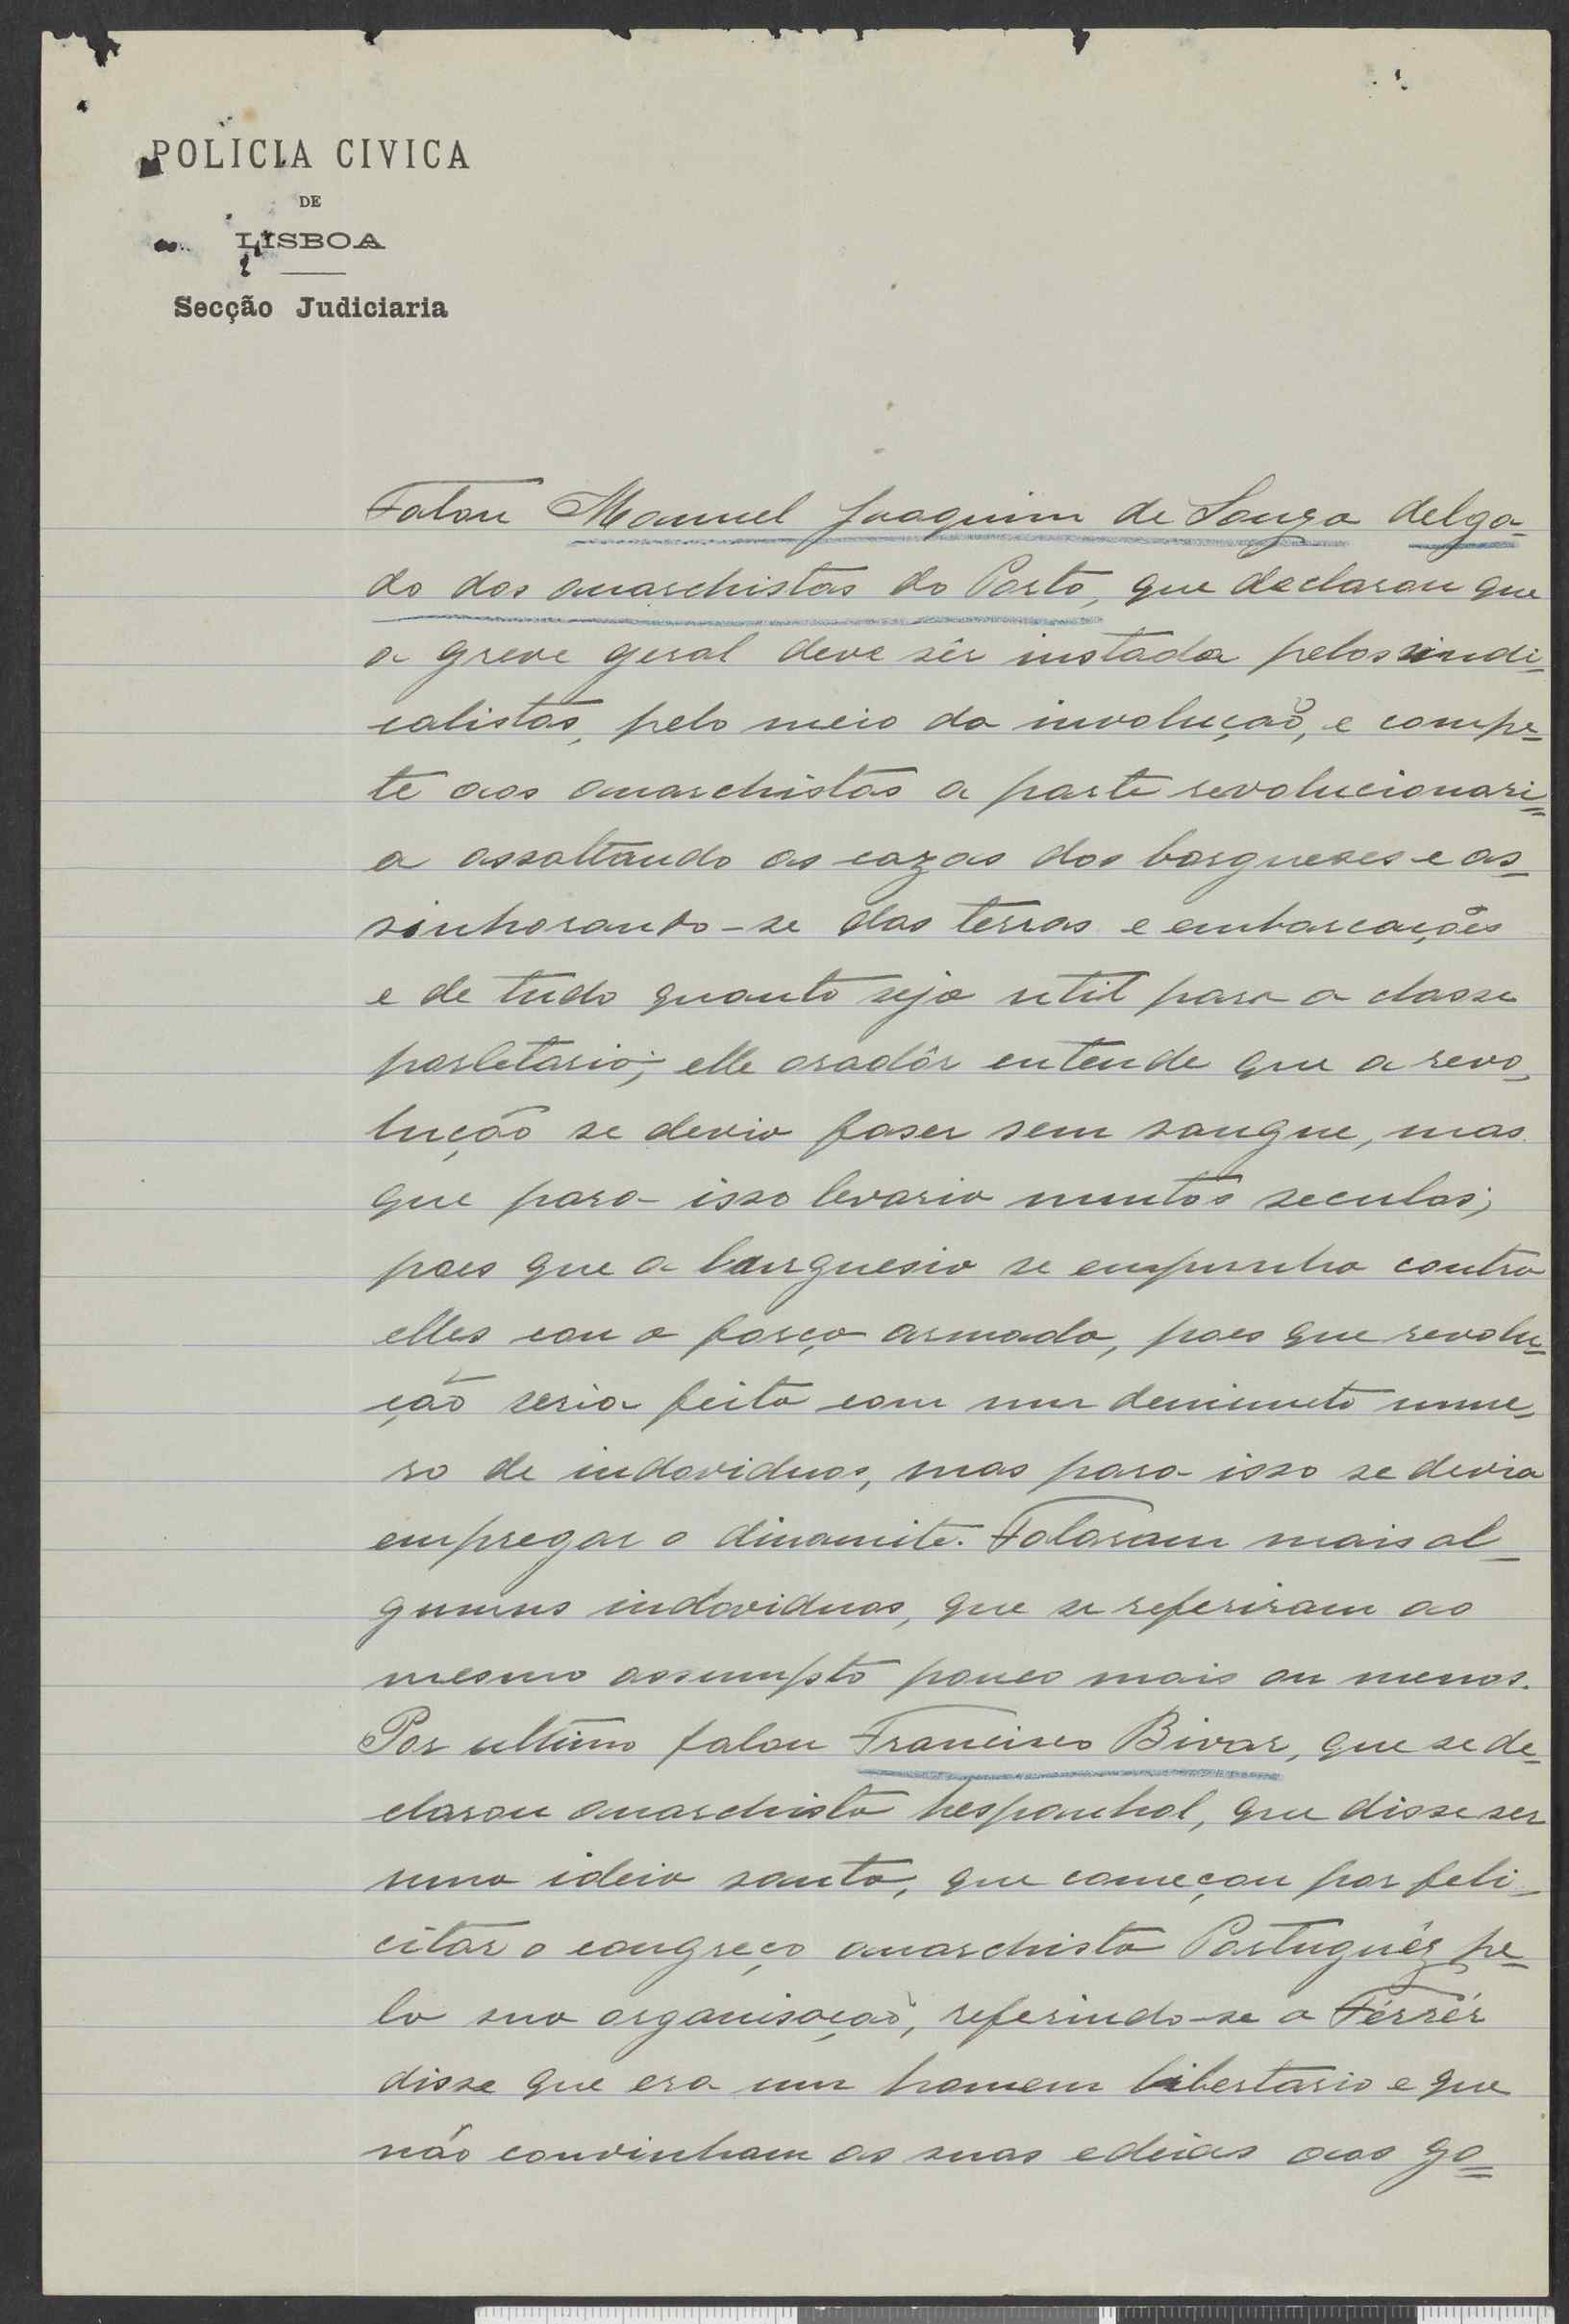 POLICIA CIVICA
DE
LISBOA
Secção Judiciaria
Falou Manuel Joaquim de Souza delga-
do dos anarchistas do Porto, que declarou que
a greve geral deve sêr instada pelos sindi-
calistas, pelo meio da involução, e compe-
te aos anarchistas a parte revolucionari-
a assaltando as cazas dos borgueses e as-
sinhorando-se das terras e embarcações
e de tudo quanto seja util para a classe
parletario; elle oradôr entende que a revo-
lução se devia faser sem sangue, mas
que para isso levaria muntos seculos;
poes que a burguesia se empunha contra
elles con a força armada, poes que revolu-
ção seria feita com um deminuto nume-
ro de indaviduos, mas para isso se devia
empregar o dinamite. Falaram mais al-
gumus indaviduos, que se referiram ao
mesmo assumpto pouco mais ou menos.
Por ultimo falou Francisco Bivar, que se de-
clarou anarchista hespanhol, que disse ser
uma ideia santa, que começou por feli-
citar o congreço anarchista Português pe-
la sua organisação, referindo-se a Férrér
disse que era um homem libertario e que
não convinham as suas edeias aos go-